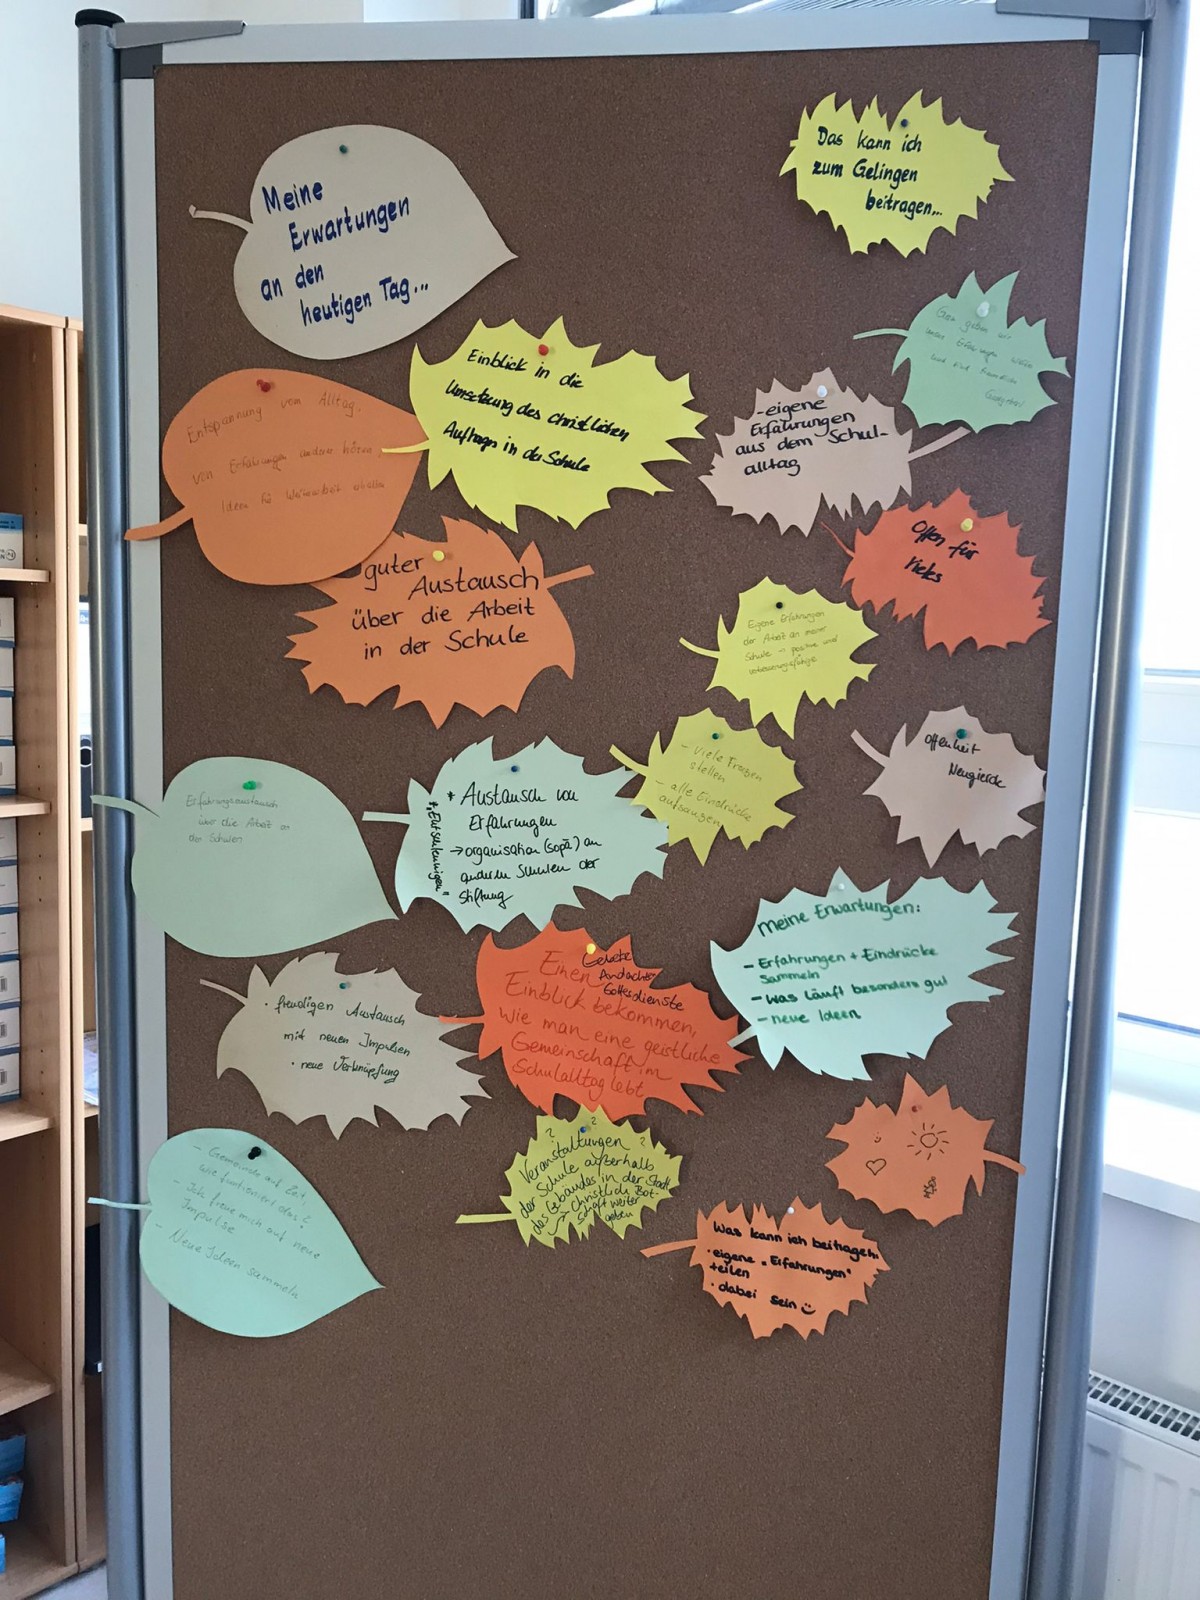 Meine
Erwartungen
an den
heutigen Tag...
Das kann ich
zum Gelingen
beitragen...
Einblick in die
Umsetzung des christlichen
Auftrags in der Schule
Entspannung vom Alltag,
von Erfahrungen anderer hören,
Ideen für
guter
Austausch
über die Arbeit
in der Schule
Erfahrungsaustausch
über die Arbeit an
den Schulen
"Entschleunigen"
* Austausch von
Erfahrungen
→ organisation (sopä) an
anderen Schulen der
Stiftung
• freudigen Austausch
mit neuen Impulsen
• neue Verknüpfung
Gebete
Andachts
Gottesdienste
Einen
Einblick bekommen,
wie man eine geistliche
Gemeinschaft im
Schulalltag lebt
meine Erwartungen:
- Erfahrungen + Eindrücke
sammeln
- was läuft besonders gut
- neue Ideen
- Gemeinde auf Zeit,
wie funktioniert das?
- Ich freue mich auf neue
Impulse
- Neue Ideen sammeln
? ? ?
Veranstaltungen
der Schule außerhalb
des Gebäudes in der Stadt
→ Christlich Bot-
schaft weiter
geben
Gern geben wir
unsere Erfahrungen weiter
und sind
Gastgeber
- eigene
Erfahrungen
aus dem Schul-
alltag
Offen für
Vieles
Eigene Erfahrungen
der Arbeit an meiner
Schule → positive und
verbesserungsfähige
- viele Fragen
stellen
- alle Eindrücke
aufsaugen
Offenheit
Neugierde
Was kann ich beitragen:
• eigene "Erfahrungen"
teilen
• dabei sein